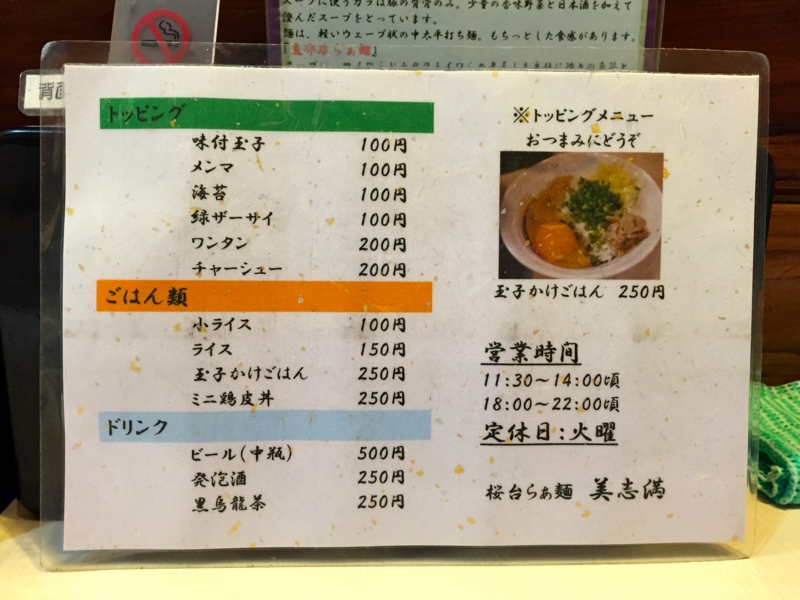 スープに使うガラは豚の背骨のみ。少量の香味野菜と日本酒を加えて
澄んだスープをとっています。
麺は、軽いウェーブ状の中太平打ち麺。もちっとした食感があります。
トッピング
味付玉子 100円
メンマ 100円
海苔 100円
緑ザーサイ 100円
ワンタン 200円
チャーシュー 200円
ごはん類
小ライス 100円
ライス 150円
玉子かけごはん 250円
ミニ鶏皮丼 250円
ドリンク
ビール(中瓶) 500円
発泡酒 250円
黒烏龍茶 250円
※トッピングメニュー
おつまみにどうぞ
玉子かけごはん 250円
営業時間
11:30〜14:00頃
18:00〜22:00頃
定休日:火曜
桜台らぁ麺 美志満